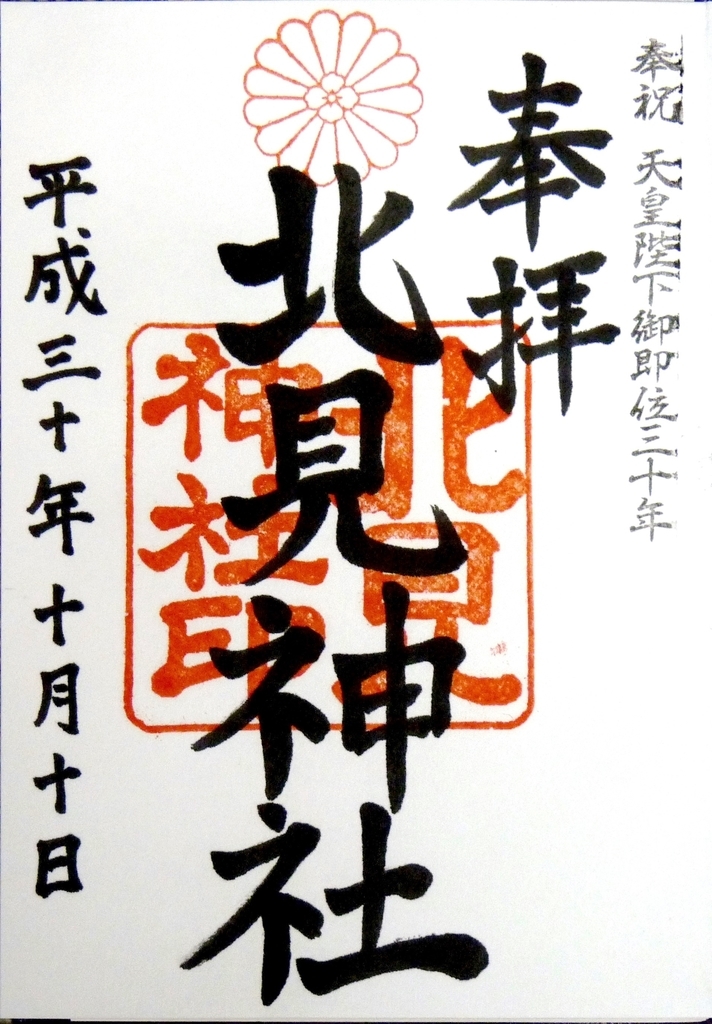 奉祝 天皇陛下御即位三十年
奉拝
北見神社
北見
神社印
平成三十年十月十日